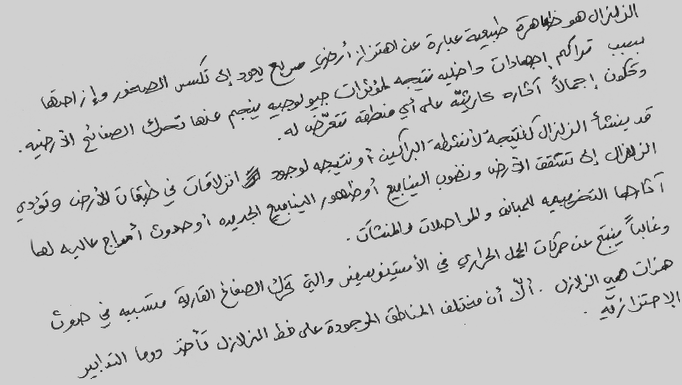 الزلزال هو ظاهرة طبيعية عبارة عن اهتزاز أرضي سريع يعود إلى تكسر الصخور وإزاحتها
بسبب تراكم إجهادات داخلية نتيجة لمؤثرات جيولوجية ينجم عنها تحرك الصفائح الأرضية.
وتكون إجمالاً آثاره كارثيّة على أي منطقة تتعرّض له.
قد ينشأ الزلزال كنتيجة لأنشطة البراكين أو نتيجة لوجود انزلاقات في طبقات الأرض وتؤدي
الزلازل إلى تشقق الأرض ونضوب الينابيع أو ظهور الينابيع الجديدة أو حدوث أمواج عالية لها
آثارها التخريبية للمباني والمواصلات والمنشآت.
وغالباً ينتج عن حركات الحمل الحراري في الأستينوسفير والتي تحرك الصفائح القارية متسببة في حدوث
هزات هي الزلازل. ألّا أن مختلف المناطق الموجودة على خط الزلازل تأخذ دوما التدابير
الاحترازيّة.